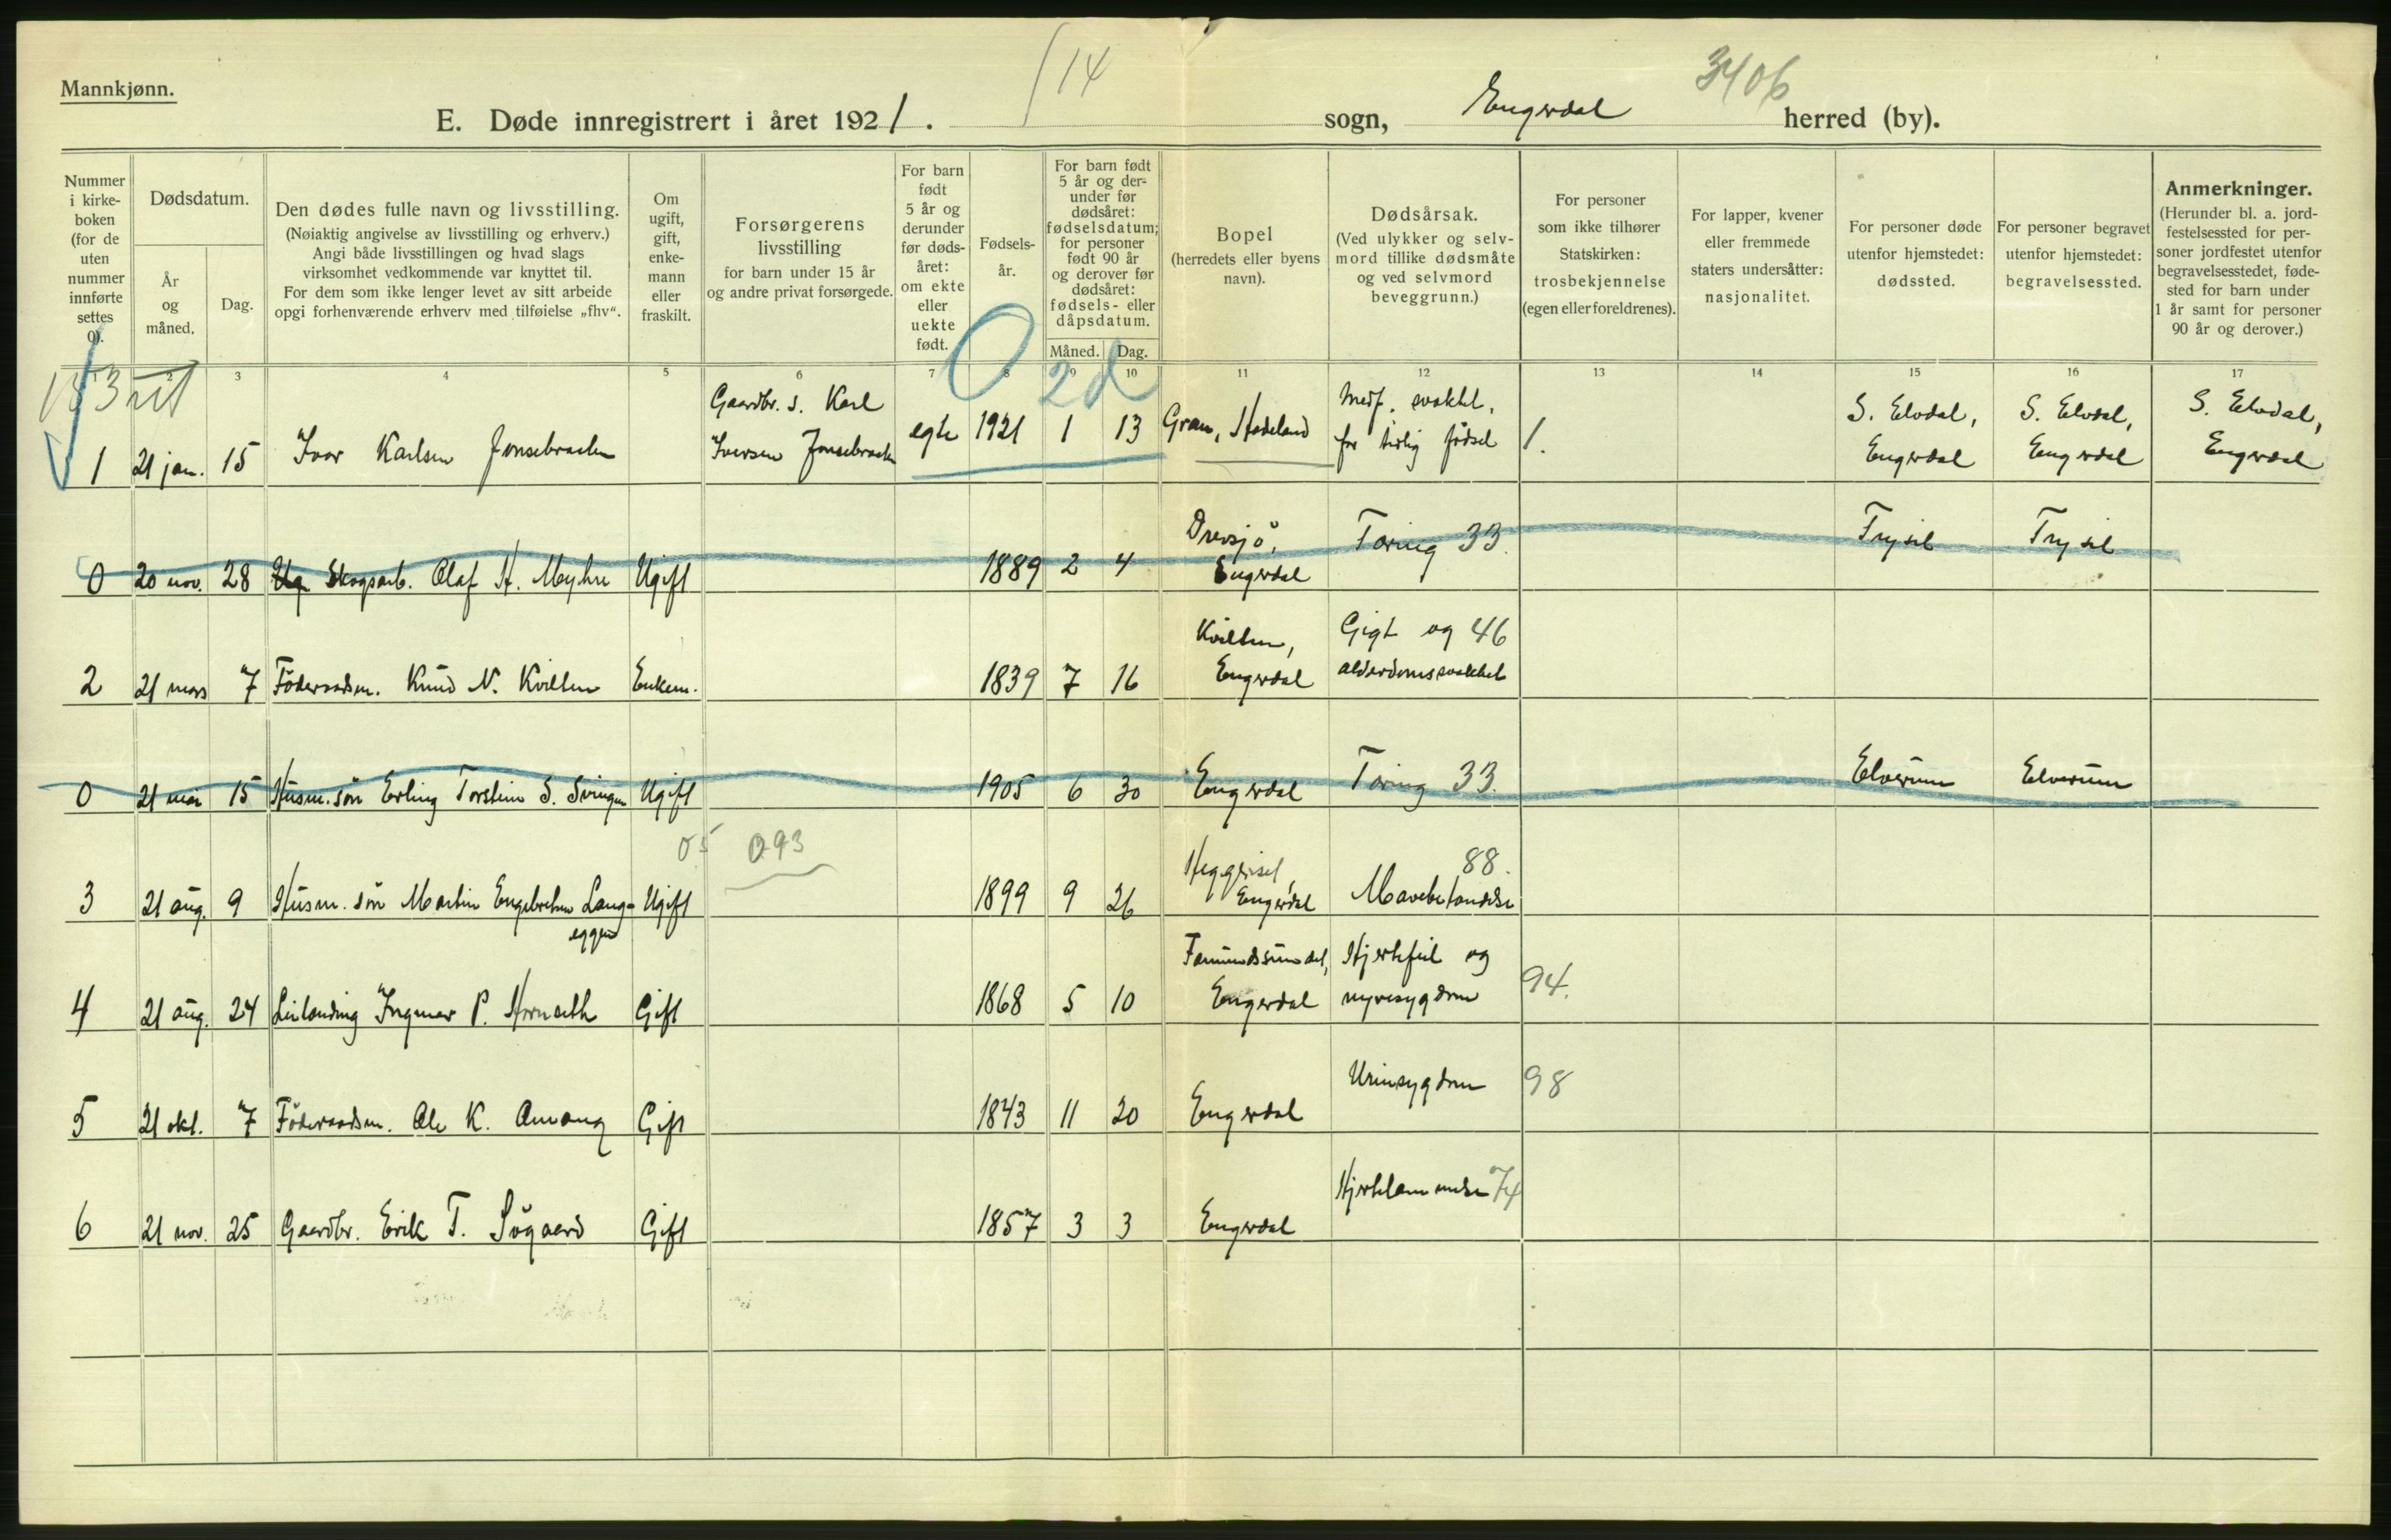 Mannkjønn.
14
3406
E. Døde innregistrert i året 1921. sogn, Engerdal herred (by).
Nummer i kirke- boken (for de uten nummer innførte settes 0).
Dødsdatum.
År og måned.
Dag.
Den dødes fulle navn og livsstilling.
(Nøiaktig angivelse av livsstilling og erhverv.)
Angi både livsstillingen og hvad slags
virksomhet vedkommende var knyttet til.
For dem som ikke lenger levet av sitt arbeide
opgi forhenværende erhverv med tilføielse „fhv“.
Om ugift, gift, enke- mann eller fraskilt.
Forsørgerens
livsstilling
for barn under 15 år
og andre privat forsørgede.
For barn født 5 år og derunder før døds- året: om ekte eller uekte født.
Fødsels- år.
For barn født 5 år og der- under før dødsåret: fødselsdatum; for personer født 90 år og derover før dødsåret: fødsels- eller dåpsdatum.
Måned. Dag.
Bopel
(herredets eller byens
navn).
Dødsårsak.
(Ved ulykker og selv-
mord tillike dødsmåte
og ved selvmord
beveggrunn.)
For personer
som ikke tilhører
Statskirken:
trosbekjennelse
(egen eller foreldrenes).
For lapper, kvener
eller fremmede
staters undersåtter:
nasjonalitet.
For personer døde
utenfor hjemstedet:
dødssted.
For personer begravet
utenfor hjemstedet:
begravelsessted.
Anmerkninger.
(Herunder bl. a. jord-
festelsessted for per-
soner jordfestet utenfor
begravelsesstedet, føde-
sted for barn under
1 år samt for personer
90 år og derover.)
2 3 4 5 6 7 8 9 10 11 12 13 14 15 16 17
0 2d
1 21 jan. 15 Ivar Karlsen Jonsebraaten Gaardbr. s. Karl Iversen Jonsebraaten egte 1921 1 13 Gran, Hadeland Medf. svakhet, for tidlig fødsel 1. S. Elvdal, Engerdal S. Elvdal, Engerdal S. Elvdal, Engerdal
0 20 nov. 28 Skogsarb. Olaf H. Myhre Ugift 1889 2 4 Drevsjö, Engerdal Tæring 33. Trysil Trysil
2 21 mars 7 Föderaadsm. Knud N. Kvilten Enkem. 1839 7 16 Kvilten, Engerdal Gigt og 46 alderdomssvakhet
0 21 mai 15 Husm. sön Erling Torstein S. Svingen Ugift 1905 6 30 Engerdal Tæring 33. Elverum Elverum
05 093
3 21 aug. 9 Husm. sön Martin Engebretsen Lang- eggen Ugift 1899 9 26 Heggeriset, Engerdal 88. Mavebetændelse
4 21 aug. 24 Leilending Ingmar P. Hornseth Gift 1868 5 10 Femundssundet, Engerdal Hjertefeil og nyresygdom 94.
5 21 okt. 7 Föderaadsm. Ole K. Amang Gift 1843 11 20 Engerdal Urinsygdom 98
6 21 nov. 25 Gaardbr. Erik T. Sögaard Gift 1857 3 3 Engerdal Hjertelammelse 74